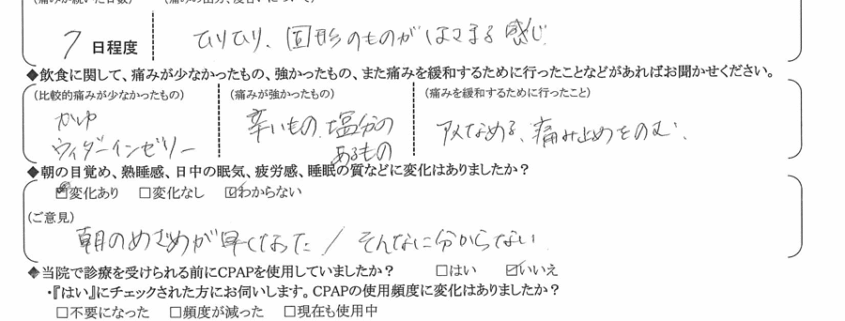 (痛みが続いた日数) (痛みの
7日程度 ひりひり、固形のものがはさまる感じ
◆飲食に関して、痛みが少なかったもの、強かったもの、また痛みを緩和するために行ったことなどがあればお聞かせください。
(比較的痛みが少なかったもの) (痛みが強かったもの) (痛みを緩和するために行ったこと)
かゆ 辛いもの、塩分の アメなめる、痛み止めをのむ。
ウィダーインゼリー あるもの
◆朝の目覚め、熟睡感、日中の眠気、疲労感、睡眠の質などに変化はありましたか?
☑変化あり □変化なし ☑わからない
(ご意見)
朝のめざめが早くなった / そんなに分からない
◆当院で診療を受けられる前にCPAPを使用していましたか? □はい ☑いいえ
・『はい』にチェックされた方にお伺いします。CPAPの使用頻度に変化はありましたか?
□不要になった □頻度が減った □現在も使用中